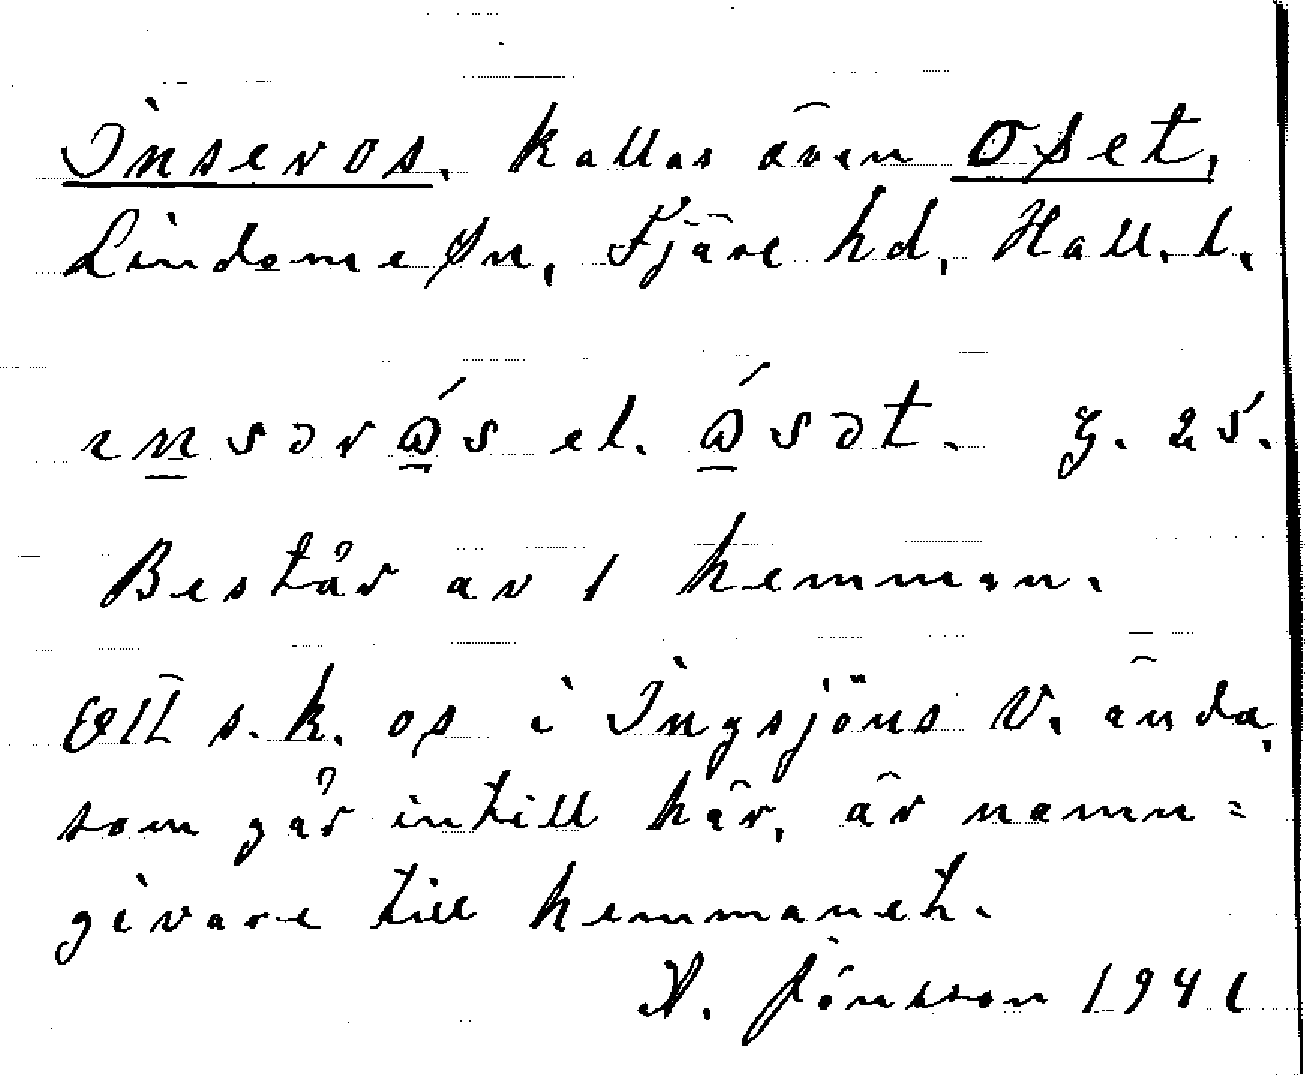 Inseros. kallas även Oset,
Lindome sn, Fjäre hd, Hall. l.
ınsərɷ́s el. ɷ́sət. J. 25.
Består av 1 hemman.
Ett s.k. os i Ingsjöns V. ända,
som går intill här, är namn=
givare till hemmanet.
A. Jönsson 1941